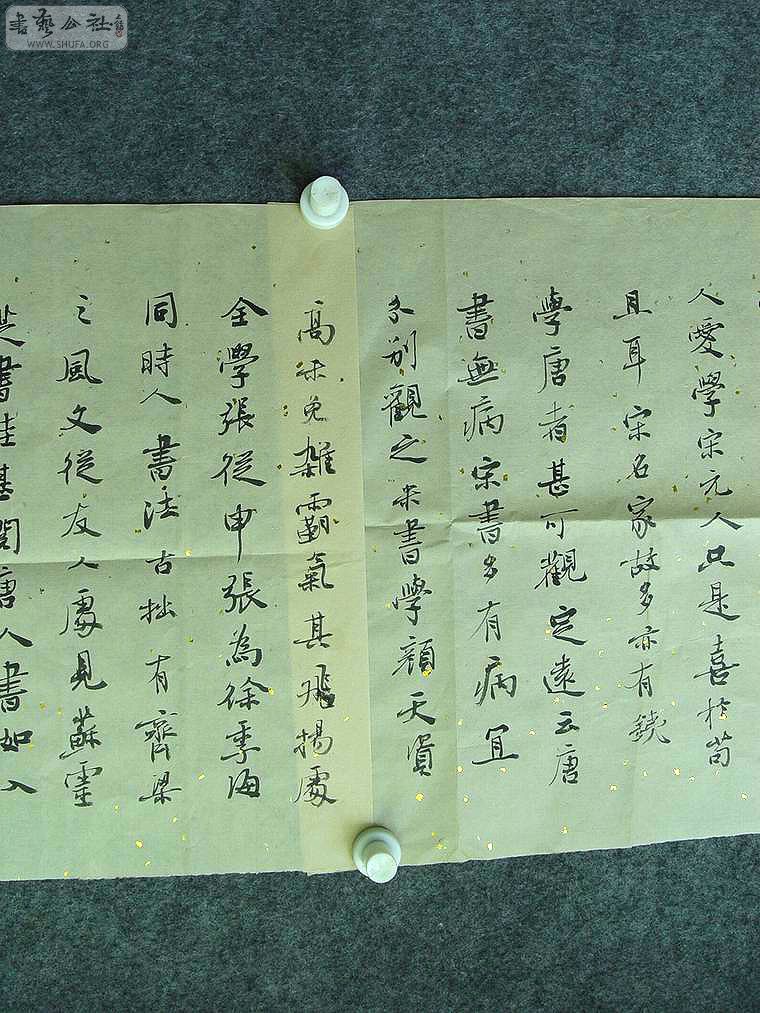 書藝公社
WWW.SHUFA.ORG
人愛學宋元人只是喜於苟
且耳宋名家故多亦有
學唐者甚可觀定遠云唐
書無病宋書多有病宜
分別觀之米書學顏天資
高不免雜霸氣其飛揚處
全學張從申張為徐季海
同時人書法古拙有齊梁
之風文從友人處見蘇靈
芝書甚閣唐人書如入